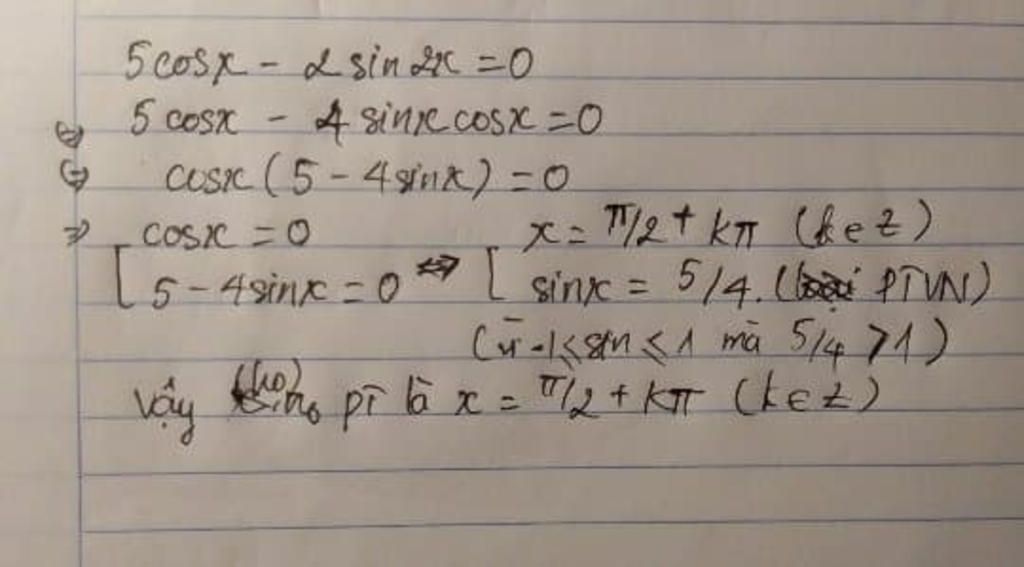 5cosx - 2sin2x = 0
⇔ 5cosx - 4sinxcosx = 0
⇔ cosx(5 - 4sinx) = 0
⇒ [ cosx = 0 x = π/2 + kπ (k∈Z)
5 - 4sinx = 0 ⇔ [ sinx = 5/4. ( PTVN)
(vì -1 ≤ sin ≤ 1 mà 5/4 > 1)
Vậy (ho) pt là x = π/2 + kπ (k∈Z)